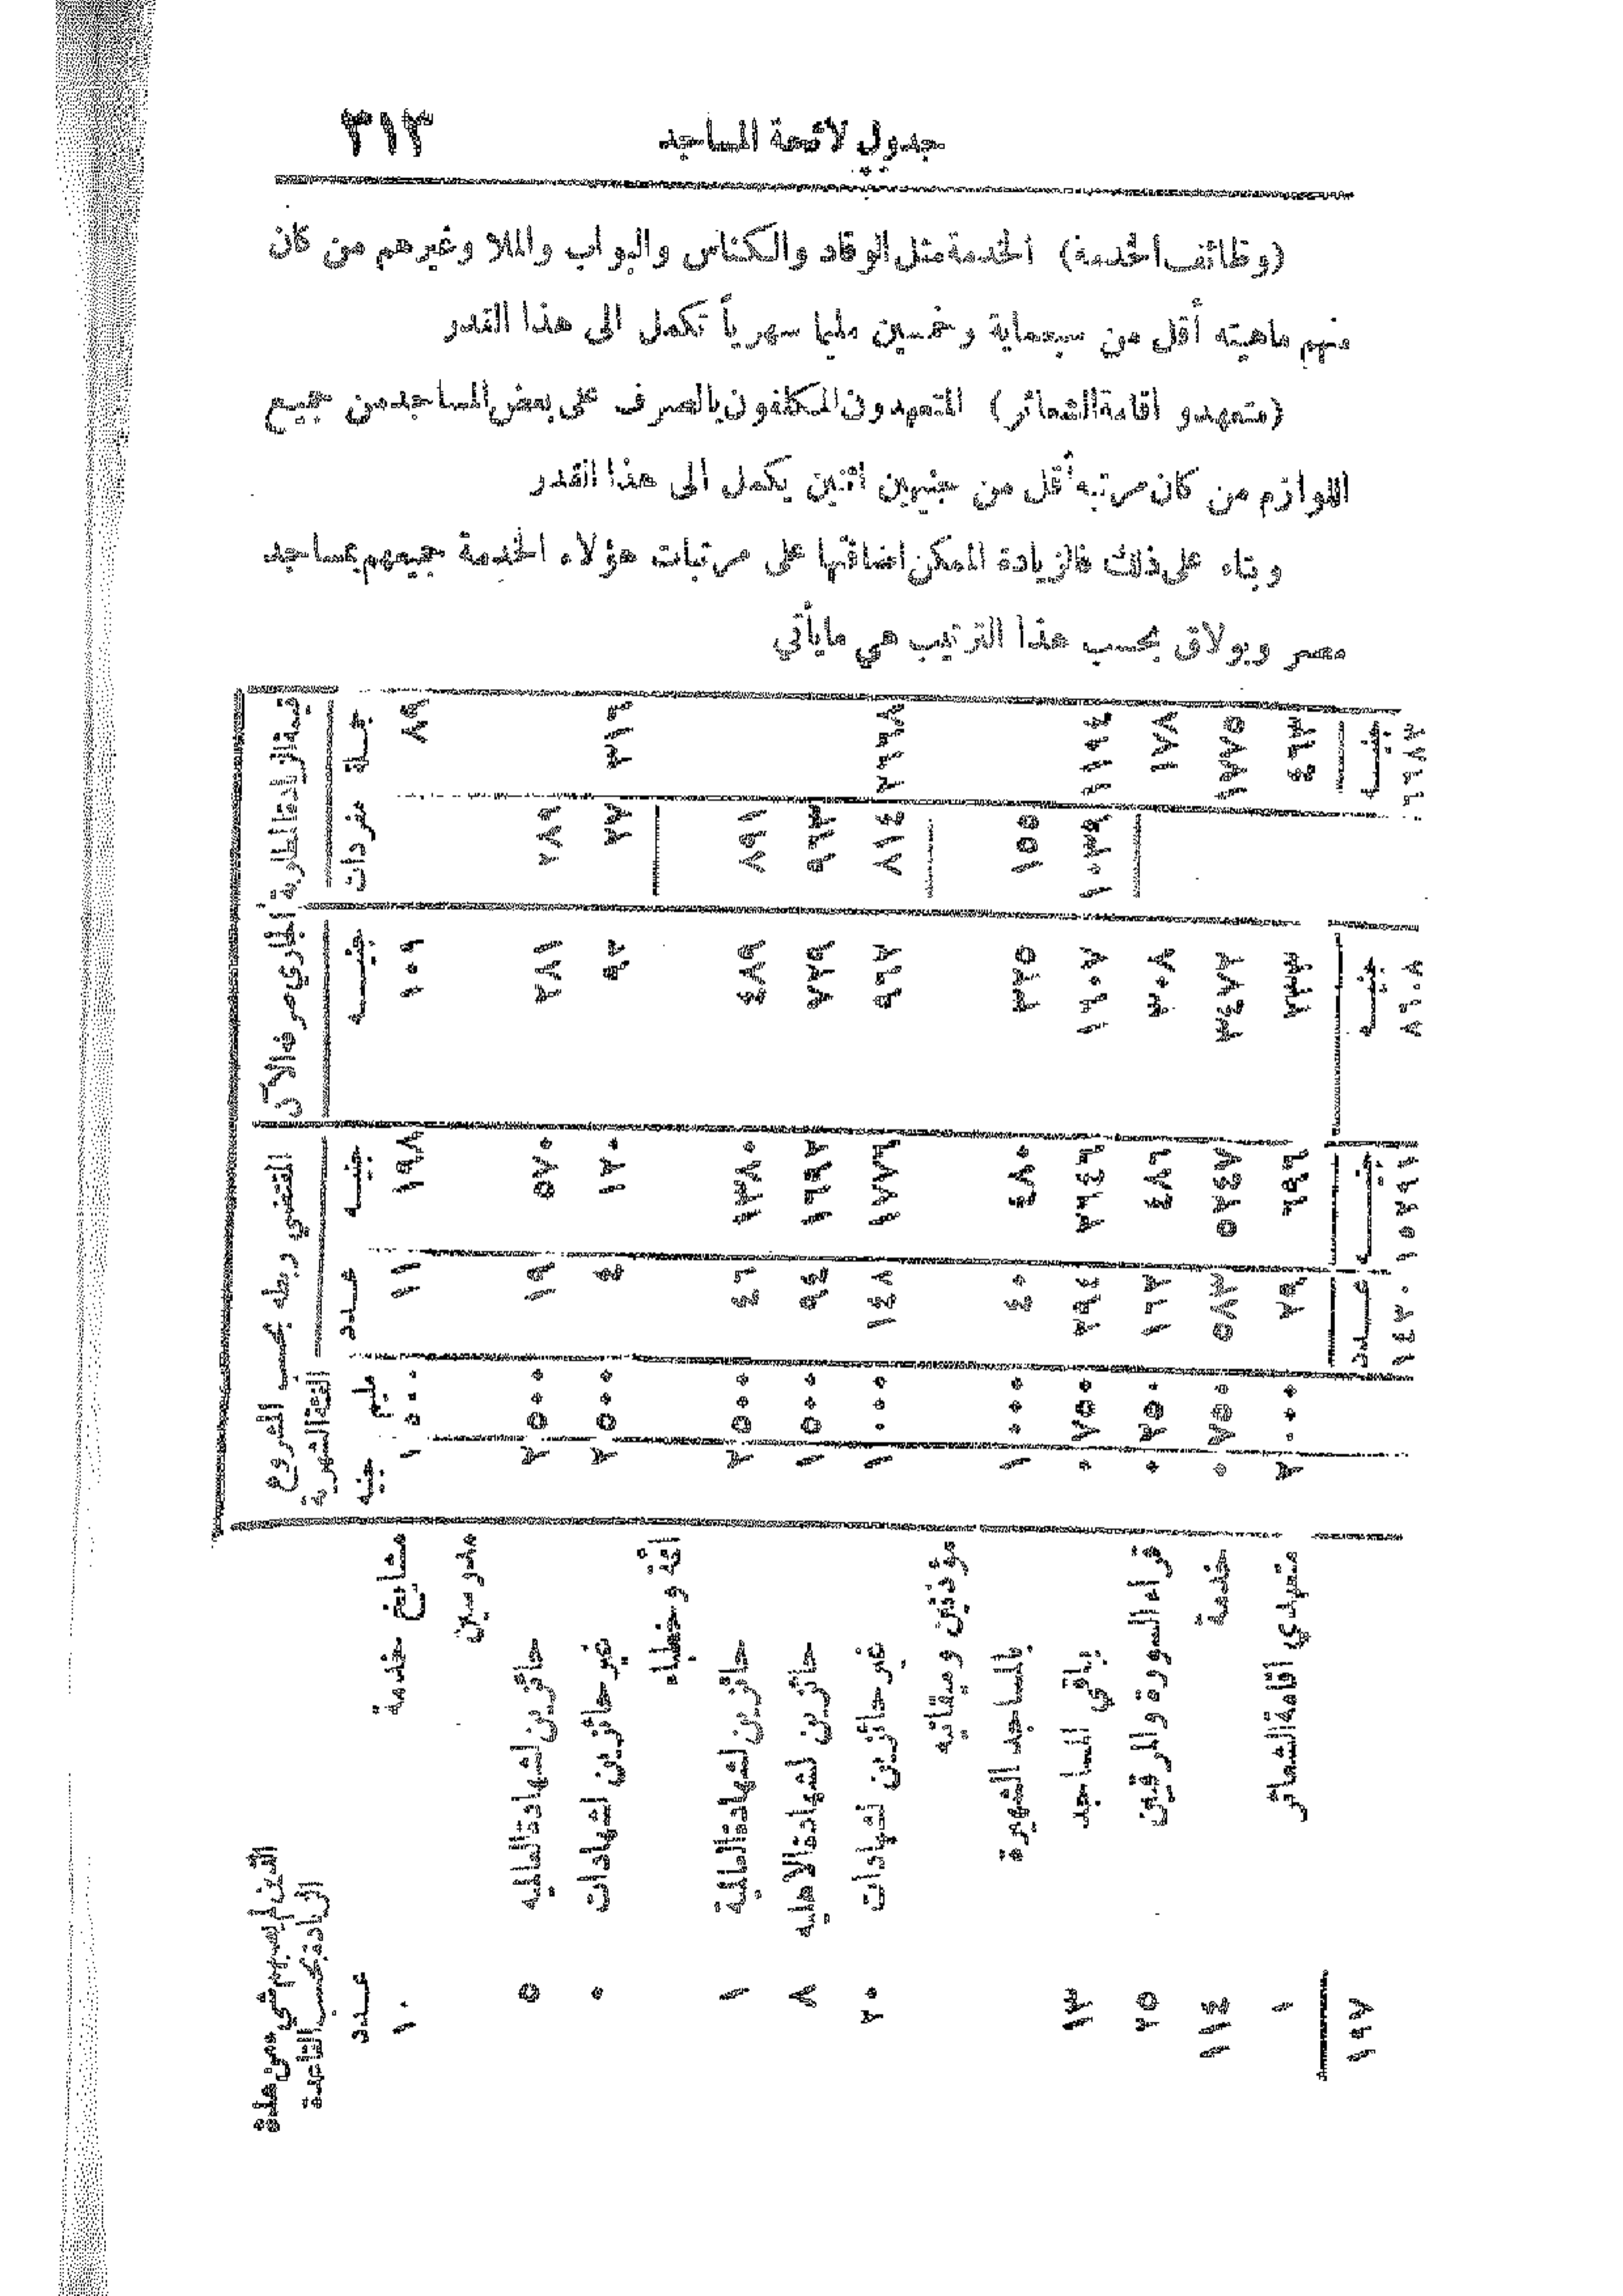 جدول لائحة المساجد ٣١٣
(وظائف الخدمة) الخدمة مثل الوقاد والكناس والبواب والملا وغيرهم من كان
منهم ماهيته أقل من سبعماية وخمسين مليما سهرياً تكمل الى هذا القدر
(متعهدو اقامة الشعائر) المتعهدون المكلفون بالصرف على بعض المساجد من جميع
اللوازم من كان مرتبه أقل من جنيهين اثنين يكمل الى هذا القدر
وبناء على ذلك فالزيادة الممكن اضافتها على مرتبات هؤلاء الخدمة جميعهم بمساجد
مصر وبولاق بحسب هذا الترتيب هي مايأتي
قيمة الزيادة المطلوبة الجاري صرفه الآن المقتضي ربطه بحسب المشروع الذين لم يصبهم شي من هذة
الفئة الشهرية الزيادة بحسب القاعدة
جملة مفردات جنيه جنيه عدد مليم جنيه عدد
٨٩ ١٠٩ ١٩٨ ١١ ٥٠٠ ١ مشايخ خدمة ١٠
مدرسين
٢٨٩ ٢٨١ ٥٧٠ ١٩ ٥٠٠ ٢ حائزين لشهادة العالميه ٥
٣١٦ ٢٧ ٩٣ ١٢٠ ٤ ٥٠٠ ٢ غير حائزين لشهادات ٠
ائمة وخطباء
٨٩١ ٤٨٩ ١٣٨٠ ٤٦ ٥٠٠ ٢ حائزين لشهادة العالمية ١
٩٦٣ ٧٢٩ ١٦٩٢ ٩٤ ٥٠٠ ١ حائزين لشهادة الاهليه ٨
٢٦٦٨ ٨١٤ ٩٦٢ ١٧٧٦ ١٤٨ ٠٠٠ ١ غير حائزين لشهادات ٢٠
مؤذنين وميقاتيه
١٥٥ ٣٢٥ ٤٨٠ ٤٠ ٠٠٠ ١ بالمساجد الشهيرة
١١٩٤ ١٠٣٩ ١٦٠٧ ٢٦٤٦ ٢٩٤ ٧٥٠ ٠ باقي المساجد ١٣
١٧٨ ٣٠٨ ٤٨٦ ١٦٢ ٢٥٠ ٠ قراء السورة والمرقيين ٢٥
١٧٧٥ ٣٤٧٢ ٥٢٤٧ ٥٨٣ ٧٥٠ ٠ خدمة ١١٤
٤٦٣ ٢٣٣ ٦٩٦ ٢٩ ٠٠٠ ٢ متعهدي اقامة الشعائر ١
جنيه جنيه جنيه عدد
٦٦٨٣ ٨٦٠٨ ١٥٢٩١ ١٤٣٠ ١٩٧